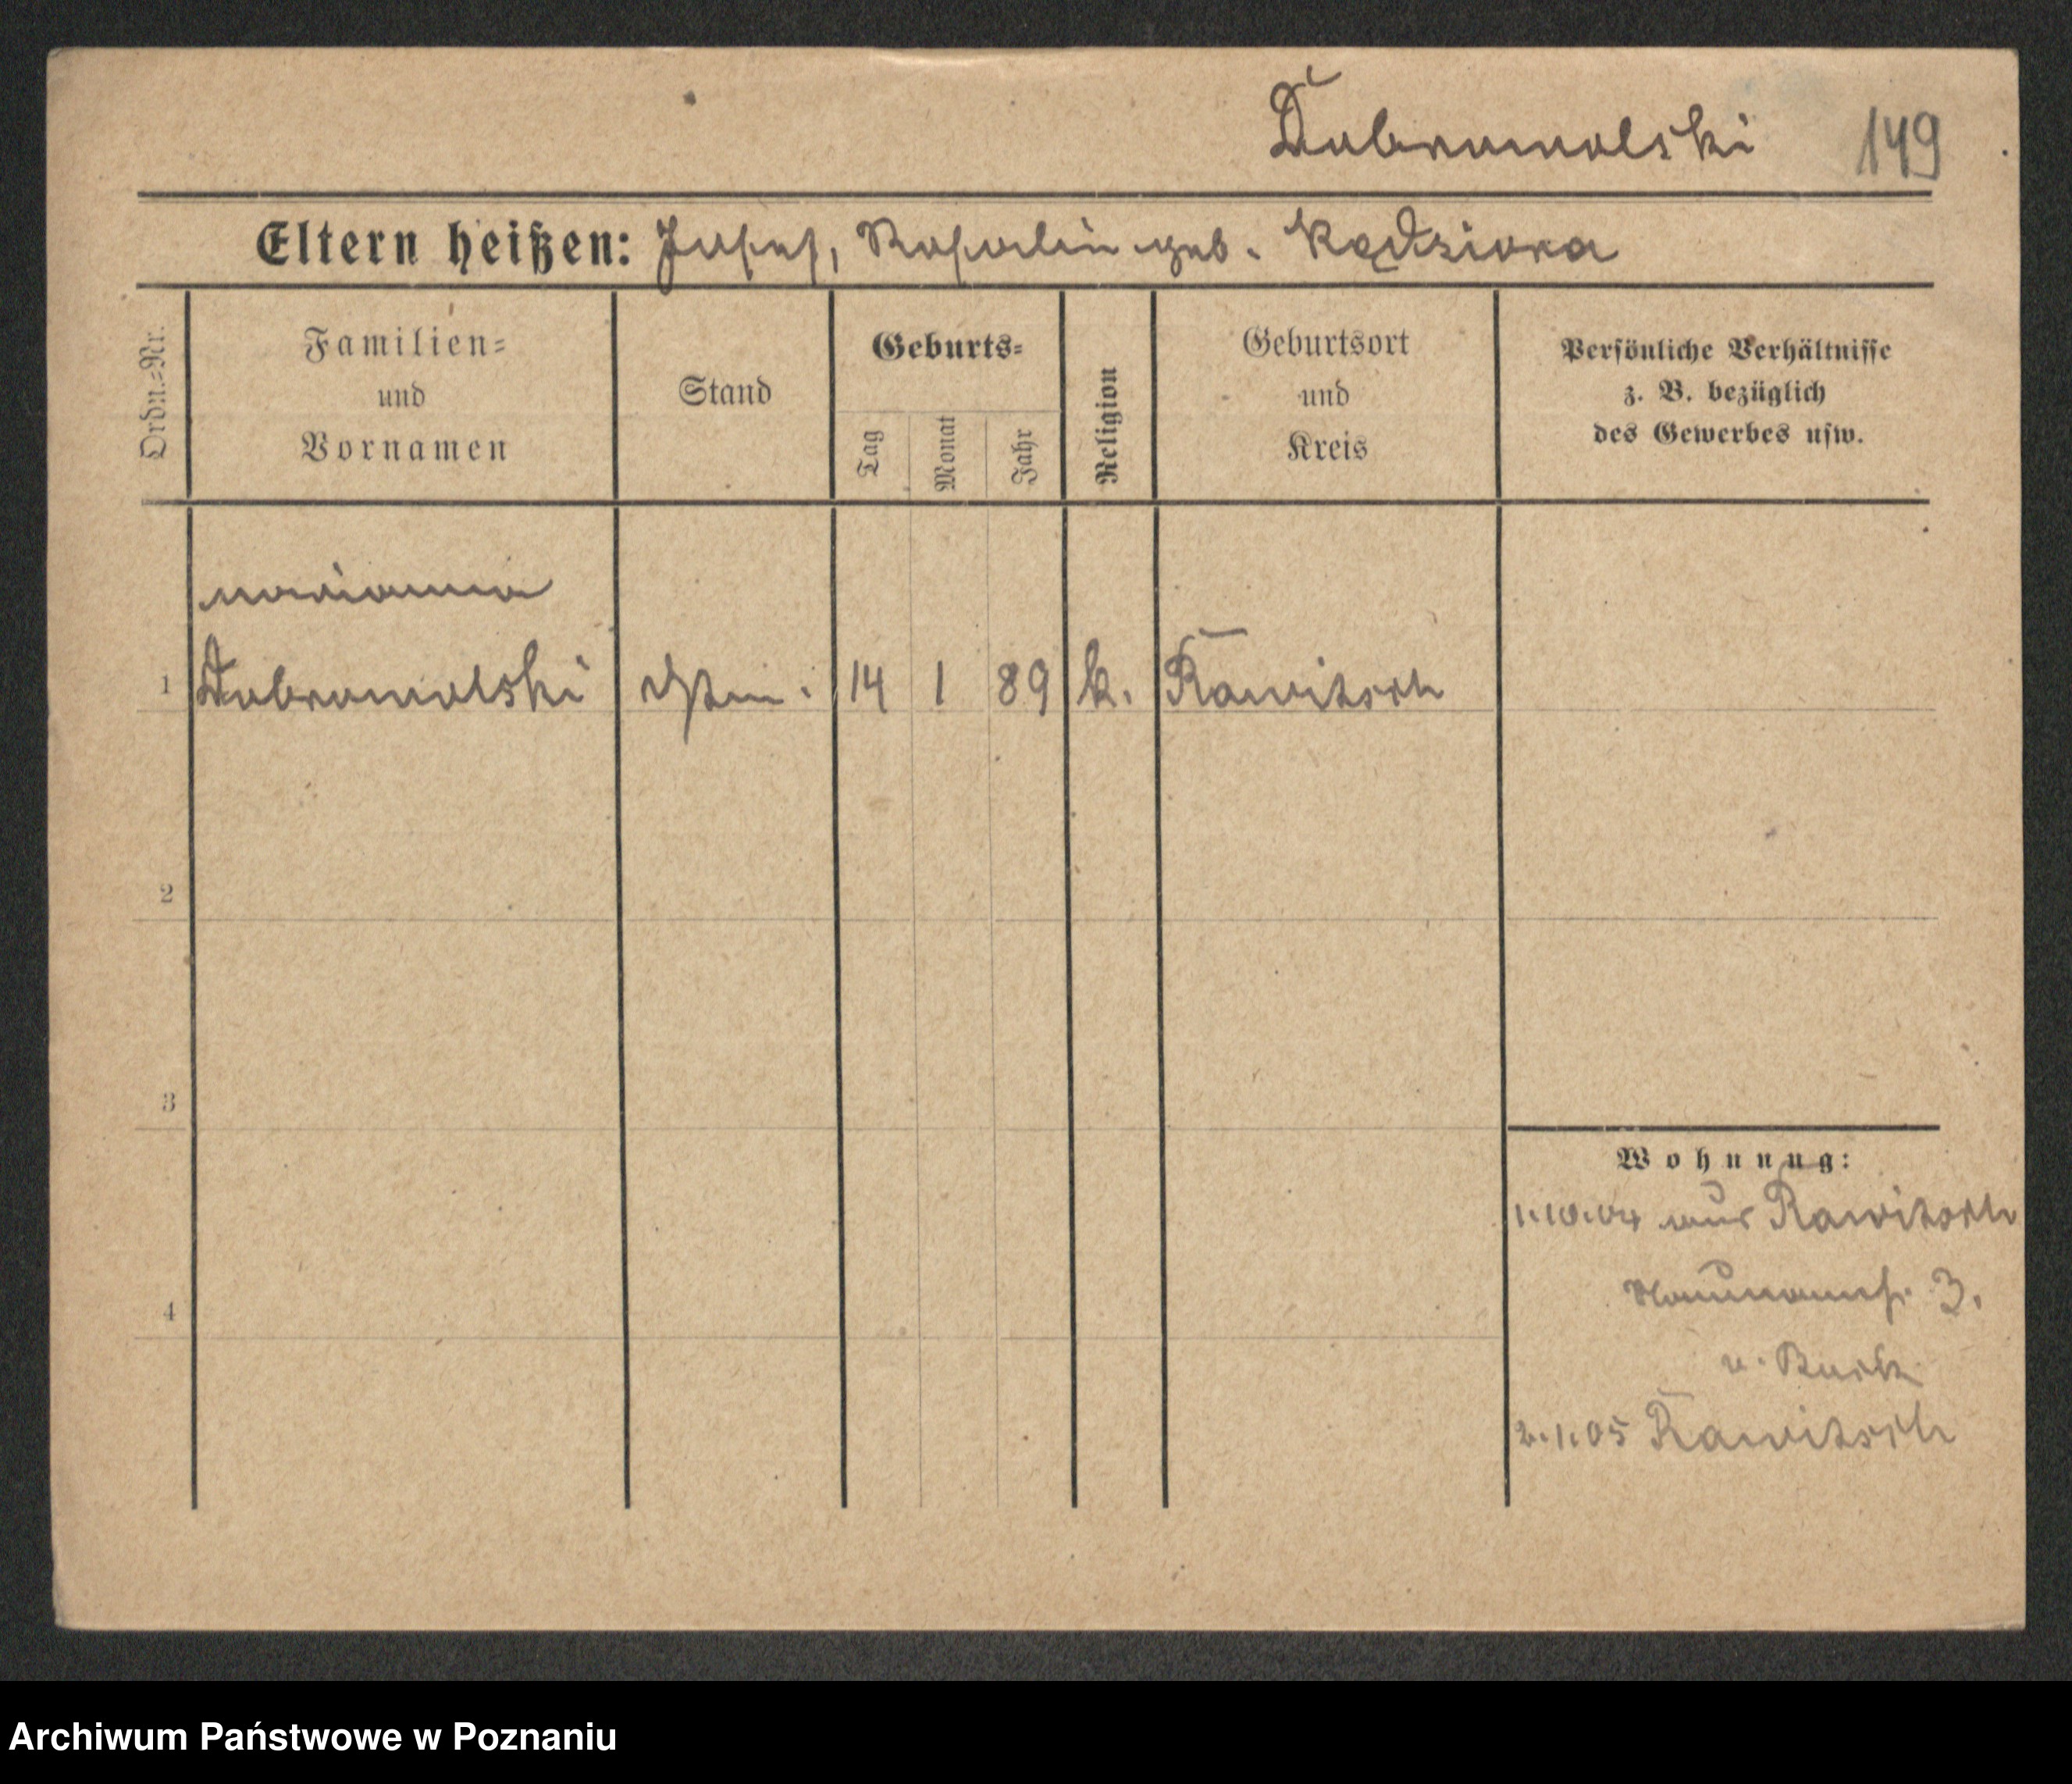 Dubromolski 149
Eltern heißen: Josef, Rosalie geb. Kędziora
Ordn.-Nr.
Familien-
und
Vornamen
Stand
Geburts-
Tag
Monat
Jahr
Religion
Geburtsort
und
Kreis
Persönliche Verhältnisse
z. B. bezüglich
des Gewerbes usw.
Marianna
1 Dubromolski 14 1 89 k. Rawitsch
2
3
4
Wohnung:
1.10.04 aus Rawitsch
Naumannstr. 3.
2.1.05 Rawitsch
Archiwum Państwowe w Poznaniu